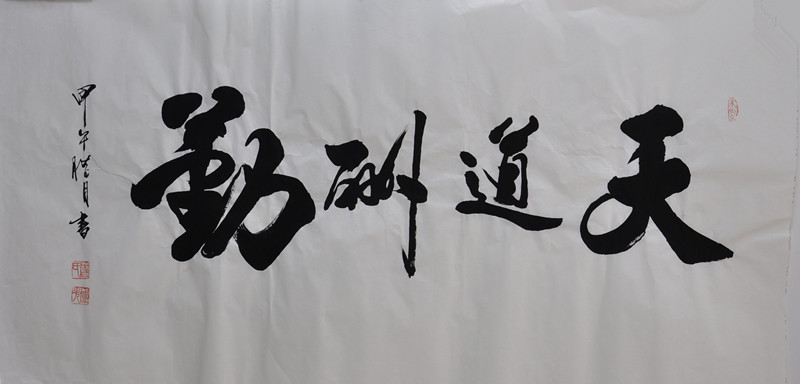 天道酬勤
甲午腊月书